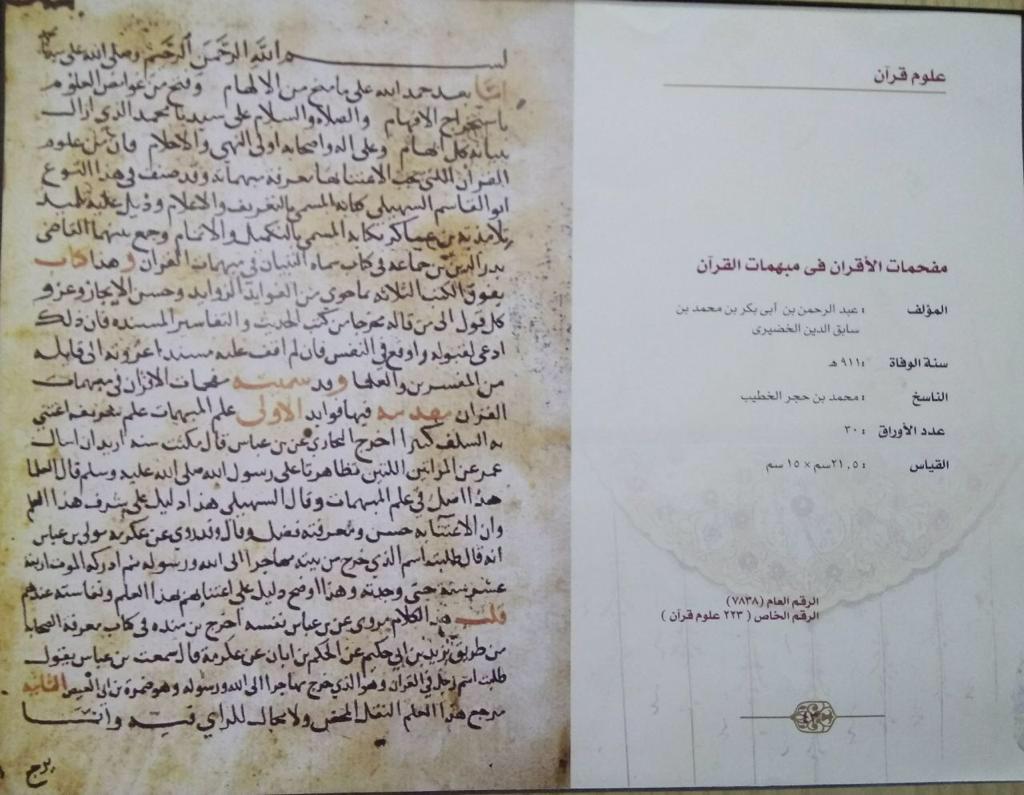 علوم قرآن
مفحمات الأقران فى مبهمات القرآن
المؤلف : عبد الرحمن بن أبى بكر بن محمد بن
سابق الدين الخضيرى
سنة الوفاة : ٩١١ هـ
الناسخ : محمد بن حجر الخطيب
عدد الأوراق : ٣٠
القياس : ٢١,٥سم × ١٥ سم
الرقم العام (٧٨٣٨)
الرقم الخاص ( ٢٢٣ علوم قرآن )
بسم الله الرحمن الرحيم وصلى الله على سيدنا
اما بعد حمد الله على ما منح من الالهام وفتح من غوامض العلوم
باستخراج الافهام والصلاه والسلام على سيدنا محمد الذى ازال
ببيانه كل ابهام وعلى اله واصحابه اولى النهى والاحلام فان من علوم
القران التى يجب الاعتناء بها معرفة مبهماته وقد صنف فى هذا النوع
ابو القاسم السهيلى كتابه المسمى بالتعريف والاعلام وذيل عليه تلميذ
تلامذته بن عساكر بكتابه المسمى بالتكميل والاتمام وجمع بينهما القاضى
بدر الدين بن جماعه فى كتاب سماه التبيان فى مبهمات القران وهذا كتاب
يفوق الكتب الثلاثه بما حوى من الفوايد الزوايد وحسن الايجاز وعزو
كل قول الى من قاله مخرجا من كتب الحديث والتفاسير المسنده فان ذلك
ادعى لقبوله واوقع فى النفس فان لم اقف عليه مسندا عزوته الى قايله
من المفسرين والعلما وقد سميته مفحمات الاقران فى مبهمات
القران مقدمه فيها فوايد الاولى علم المبهمات علم شريف اعتنى
به السلف كثيرا اخرج البخارى عن بن عباس قال مكثت سنه اريد ان اسال
عمر عن المراتين اللتين تظاهرتا على رسول الله صلى الله عليه وسلم قال العلما
هذا اصل فى علم المبهمات وقال السهيلى هذا دليل على شرف هذا العلم
وان الاعتنا به حسن ومعرفته فضل وقال وقد روى عن عكرمه مولى بن عباس
انه قال طلبت اسم الذى خرج من بيته مهاجرا الى الله ورسوله ثم ادركه الموت اربعة
عشر سنه حتى وجدته وهذا اوضح دليل على اعتنايهم بهذا العلم ونفاسته عندهم
قلت هذا الكلام مروى عن بن عباس نفسه اخرج بن منده فى كتاب معرفة الصحابه
من طريق يزيد بن ابى حكيم عن الحكم بن ابان عن عكرمة قال سمعت بن عباس يقول
طلبت اسم رجل فى القران وهو الذى خرج مهاجرا الى الله ورسوله وهو ضمرة بن ابى العيص الثانيه
مرجع هذا العلم النقل المحض ولا مجال للراى فيه وانما
يرجع